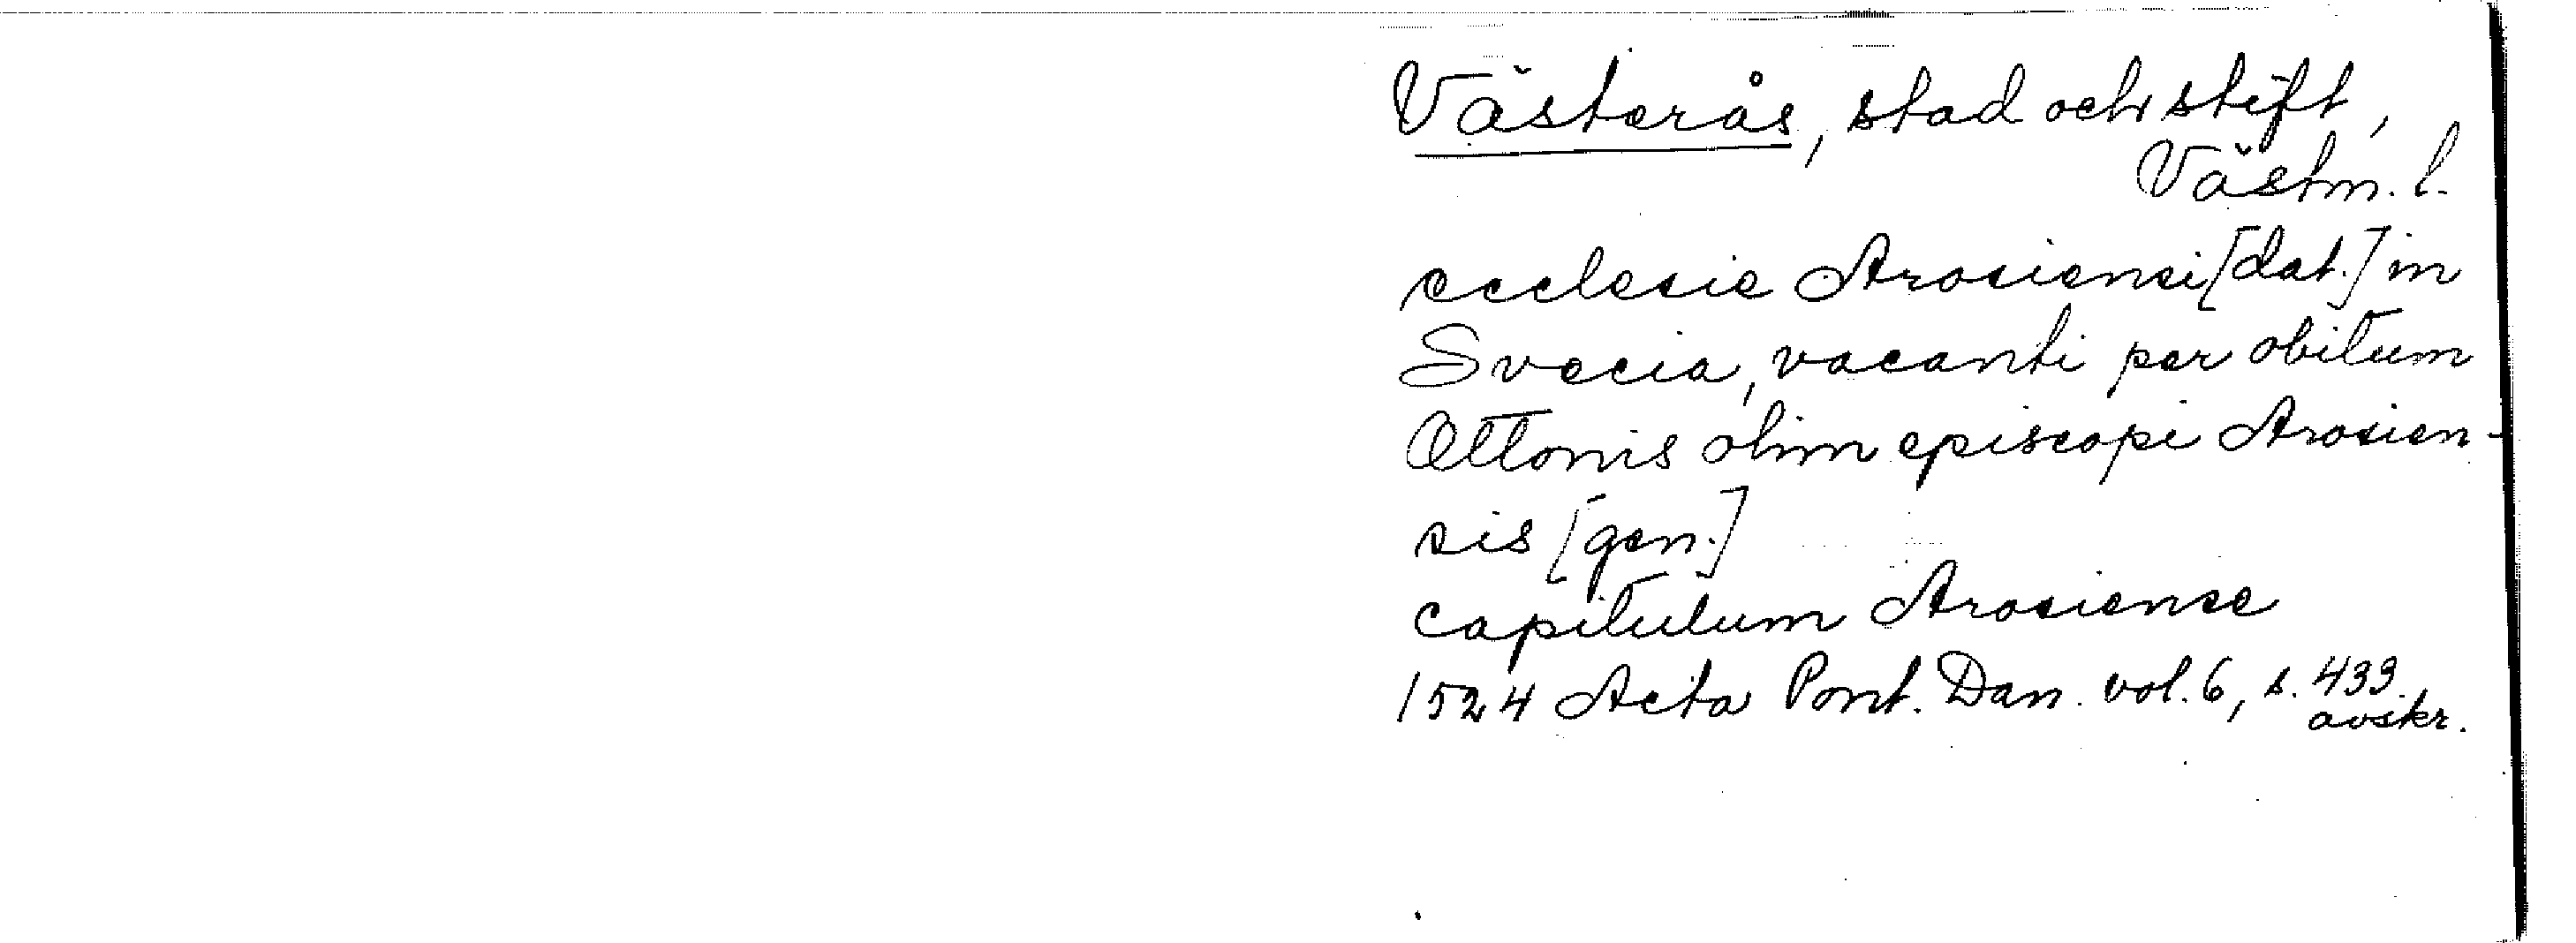 Västerås, stad och stift,
Västm. l.
ecclesie Arosiensi [dat.] in
Svecia, vacanti per obitum
Ottonis olim episcopi Arosien-
sis [gen.]
capitulum Arosiense
1524 Acta Pont. Dan. vol. 6, s. 433.
avskr.